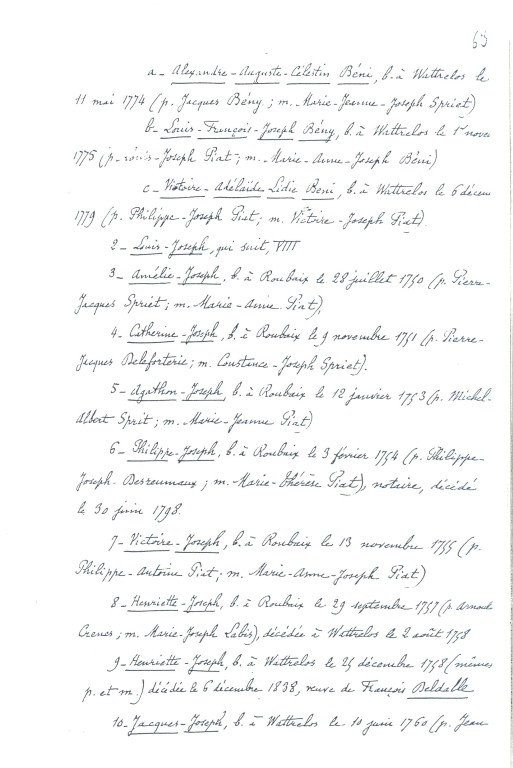 63
a - Alexandre-Auguste-Célestin Béni, b. à Wattrelos le
11 mai 1774 (p. Jacques Bény ; m. Marie-Jeanne-Joseph Spriet)
b - Louis-François-Joseph Bény, b. à Wattrelos le 1er novem
1775 (p. Louis-Joseph Piat ; m. Marie-Anne-Joseph Béni)
c - Victoire-Adélaïde-Lidie Beni, b. à Wattrelos le 6 décem
1779 (p. Philippe-Joseph Piat ; m. Victoire-Joseph Piat).
2 - Louis-Joseph, qui suit, VIII
3 - Amélie-Joseph, b. à Roubaix le 28 juillet 1750 (p. Pierre-
Jacques Spriet ; m. Marie-Anne Piat),
4 - Catherine-Joseph, b. à Roubaix le 9 novembre 1751 (p. Pierre-
Jacques Delaforterie ; m. Constance-Joseph Spriet).
5 - Agathon-Joseph, b. à Roubaix le 12 janvier 1753 (p. Michel-
Albert Sprit ; m. Marie-Jeanne Piat)
6 - Philippe-Joseph, b. à Roubaix le 3 février 1754 (p. Philippe-
Joseph Desreumaux ; m. Marie-Thérèse Piat), notaire, décédé
le 30 juin 1798.
7 - Victoire-Joseph, b. à Roubaix le 13 novembre 1755 (p.
Philippe-Antoine Piat ; m. Marie-Anne-Joseph Piat)
8 - Henriette-Joseph, b. à Roubaix le 29 septembre 1757 (p. Arnould
; m. Marie-Joseph Labis), décédée à Wattrelos le 2 août 1758
9 - Henriette-Joseph, b. à Wattrelos le 25 décembre 1758 (mêmes
p. et m.) décédée le 6 décembre 1838, veuve de François Deldalle
10 - Jacques-Joseph, b. à Wattrelos le 10 juin 1760 (p. Jean